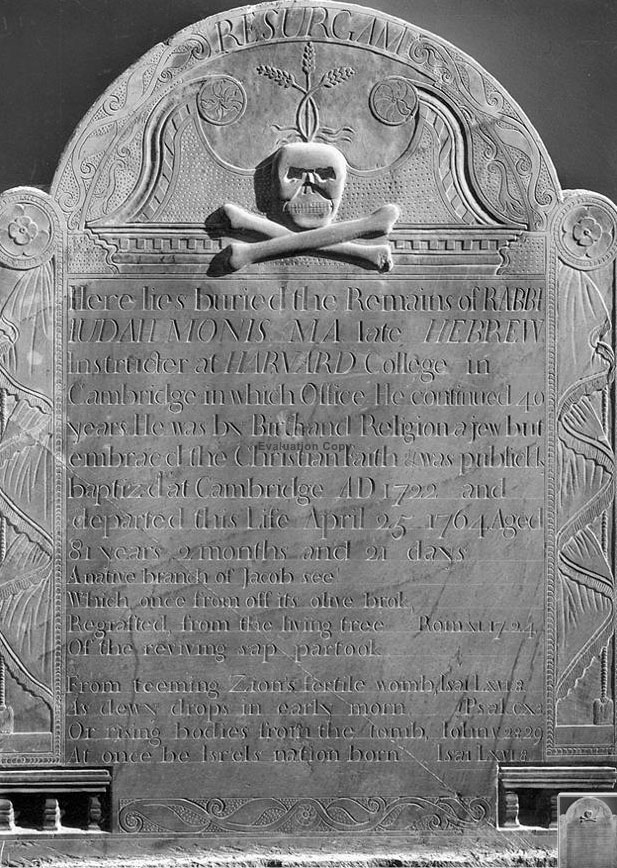 RESURGAM
Here lies buried the Remains of RABBI
IUDAH MONIS M A late HEBREW
Instructer at HARVARD College in
Cambridge in which Office He continued 40
years He was by Birth and Religion a jew but
Evaluation Copy
embrac'd the Christian Faith & was publickly
baptiz'd at Cambridge AD 1722 and
departed this Life April 25 1764 Aged
81 years 2 months and 21 days
A native branch of Jacob see!
Which once from off its olive brok,
Regrafted, from the living tree Rom XI. 17. 24.
Of the reviving sap partook
From teeming Zion's fertile womb, Isai LXVI. 8.
As dewy drops in early morn Psal. CX. 3.
Or rising bodies from the tomb, Iohn V. 28. 29
At once be Isrels nation born Isai LXVI. 8.